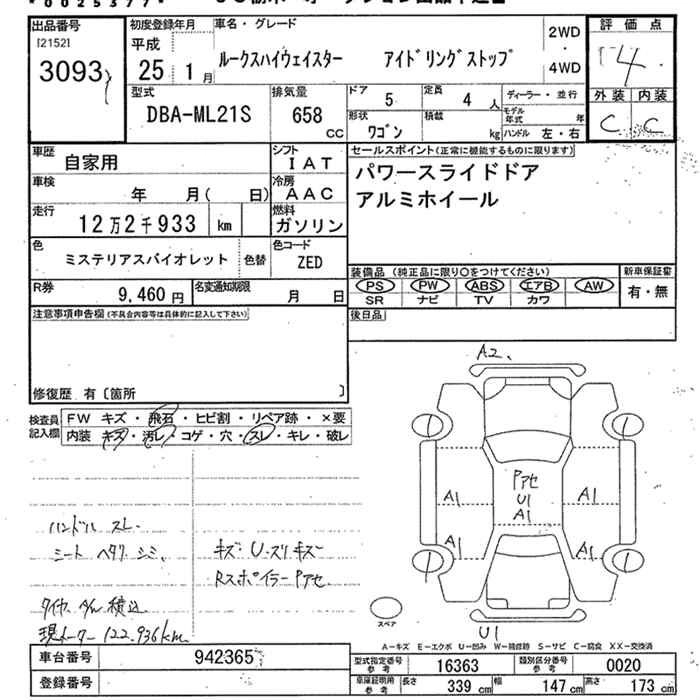 *00025377*
出品番号 初度登録年月 車名・グレード 評価点
[2152] 平成 2WD
3093 25 1月 ルークスハイウェイスター アイドリングストップ ・ 4
4WD
型式 排気量 ドア 5 定員 4 人 ディーラー・並行 外装 内装
DBA-ML21S 658 cc 形状 ワゴン 積載 kg モデル年式 年 C C
ハンドル 左・右
車歴 自家用 シフト IAT セールスポイント(正常に機能するものに限ります)
車検 年 月( 日) 冷房 AAC パワースライドドア
走行 12万2千933 km 燃料 ガソリン アルミホイール
色 ミステリアスバイオレット 色替 色コード ZED
装備品 (純正品に限り○をつけてください) 新車保証書
R券 9,460円 名変通知期限 月 日 PS PW ABS エアB AW 有・無
SR ナビ TV カワ
注意事項申告欄(不具合内容等は具体的に記入して下さい) 後日品
修復歴 有〔箇所 〕
A2.
検査員記入欄 FW キズ・飛石・ヒビ割・リペア跡・×要
内装 キズ・汚レ・コゲ・穴・スレ・キレ・破レ
Pアセ
U1
A1
A1 A1
A1 A1
ハンドル スレ.
シート ヘタリ シミ. キズ・U・スリキズ
Rスポイラー Pアセ
タイヤ 積込
スペア
現メーター 122,936km
U1
A-キズ E-エクボ U-凹み W-補修跡 S-サビ C-腐食 XX-交換済
車台番号 942365 型式指定番号 参考 16363 類別区分番号 参考 0020
登録番号 車庫証明用 参考 長さ 339 cm 幅 147 cm 高さ 173 cm